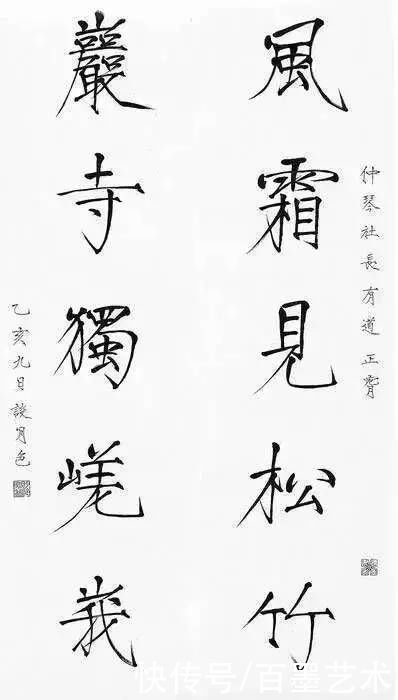 仲琴社長有道 正
風霜見松竹
巖寺獨嵯峩
乙亥九日談月色
快传号/百墨艺术